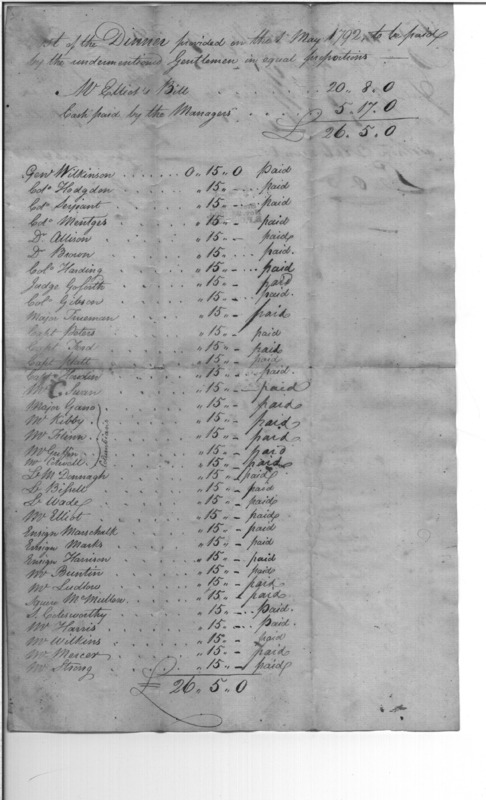 of the Dinner provided on the 1st May 1792, to be paid
by the undermentioned Gentlemen in equal proportions —
Mr Elliot's Bill 20 . 8 . 0
Cash paid by the Managers 5 . 17 . 0
£ 26 . 5 . 0
Genl Wilkinson 0 " 15 " 0 Paid
Colo Hodgdon " 15 " - paid
Colo Serjiant " 15 " - paid
Colo Mentges " 15 " - paid
Dr Allison " 15 " - paid
Dr Brown " 15 " - paid
Colo Harding " 15 " - paid
Judge Goforth " 15 " - paid
Colo Gibson " 15 " - paid
Major Trueman " 15 " - paid
Capt Peters " 15 " - paid
Capt Ford " 15 " - paid
Capt " 15 " - paid
Capt " 15 " - paid
Mr C Swan " 15 " - paid
Major Gano " 15 " - paid
Mr Kibby " 15 " - paid
Mr Flinn " 15 " - paid
Mr Griffin " 15 " - paid
Mr " 15 " - paid
Lt McDonnagh " 15 " - paid
Lt Bissell " 15 " - paid
Lt Wade " 15 " - paid
Mr Elliot " 15 " - paid
Ensign Marschalk " 15 " - paid
Ensign Marks " 15 " - paid
Ensign Harrison " 15 " - paid
Mr Buntin " 15 " - paid
Mr Ludlow " 15 " - paid
Squire McMullen " 15 " - paid
S. " 15 " - paid
Mr Harris " 15 " - paid
Mr Wilkins " 15 " - paid
Mr Mercer " 15 " - paid
Mr Strong " 15 " - paid
£ 26 . 5 . 0